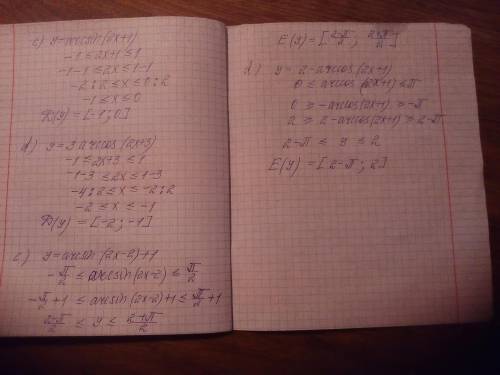 c) y=arcsin(2x+1)
-1≤2x+1≤1
-1-1≤2x≤1-1
-2:2≤x≤0:2
-1≤x≤0
D(y)=[-1;0]
d) y=3arccos(2x+3)
-1≤2x+3≤1
-1-3≤2x≤1-3
-4:2≤x≤-2:2
-2≤x≤-1
D(y)=[-2;-1]
c) y=arcsin(2x-2)+1
-π/2≤arcsin(2x-2)≤π/2
-π/2+1≤arcsin(2x-2)+1≤π/2+1
2-π/2≤y≤2+π/2
E(y)=[2-π/2; 2+π/2]
d) y=2-arccos(2x+1)
0≤arccos(2x+1)≤π
0≥-arccos(2x+1)≥-π
2≥2-arccos(2x+1)≥2-π
2-π≤y≤2
E(y)=[2-π;2]